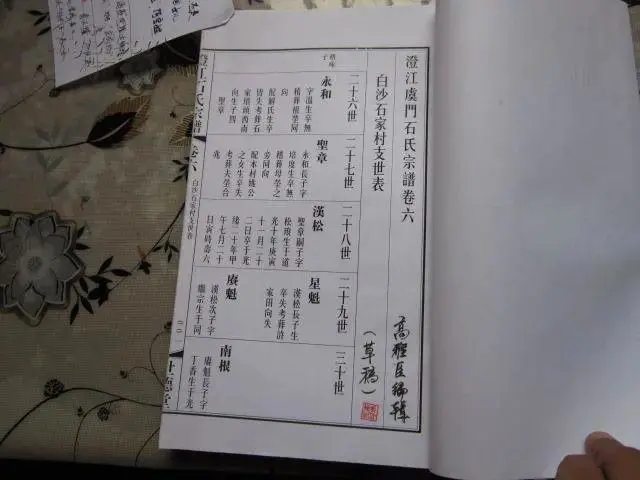 澄江虞門石氏宗譜卷六
白沙石家村支世表
高
(草稿)
二十六世
永和
字溫生卒無
積葬根塋同
向
配解氏生卒
皆失考葬石
家壙頭西南
向生子四
聖章
二十七世
聖章
永和長子字
培度生卒無
積葬母塋之
旁同向
配本村城公
之女生卒失
考葬夫塋合
兆
二十八世
漢松
聖章嗣子字
松琅生于道
光十年庚寅
十一月二十
二日卒于光
緒二十年甲
午七月二十
日寅時壽六
二十九世
星魁
漢松長子生
卒失考葬許
家田向失
賡魁
漢松次子字
繼宗生于同
三十世
南根
賡魁長子字
丁香生于光
澄江石氏宗譜
卷六
白沙石家村支世表
世德堂